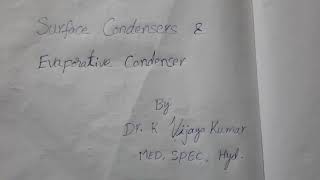 Surface Condensers &
Evaporative Condenser
By
Dr. K Vijaya Kumar
MED, SPEC, Hyd.